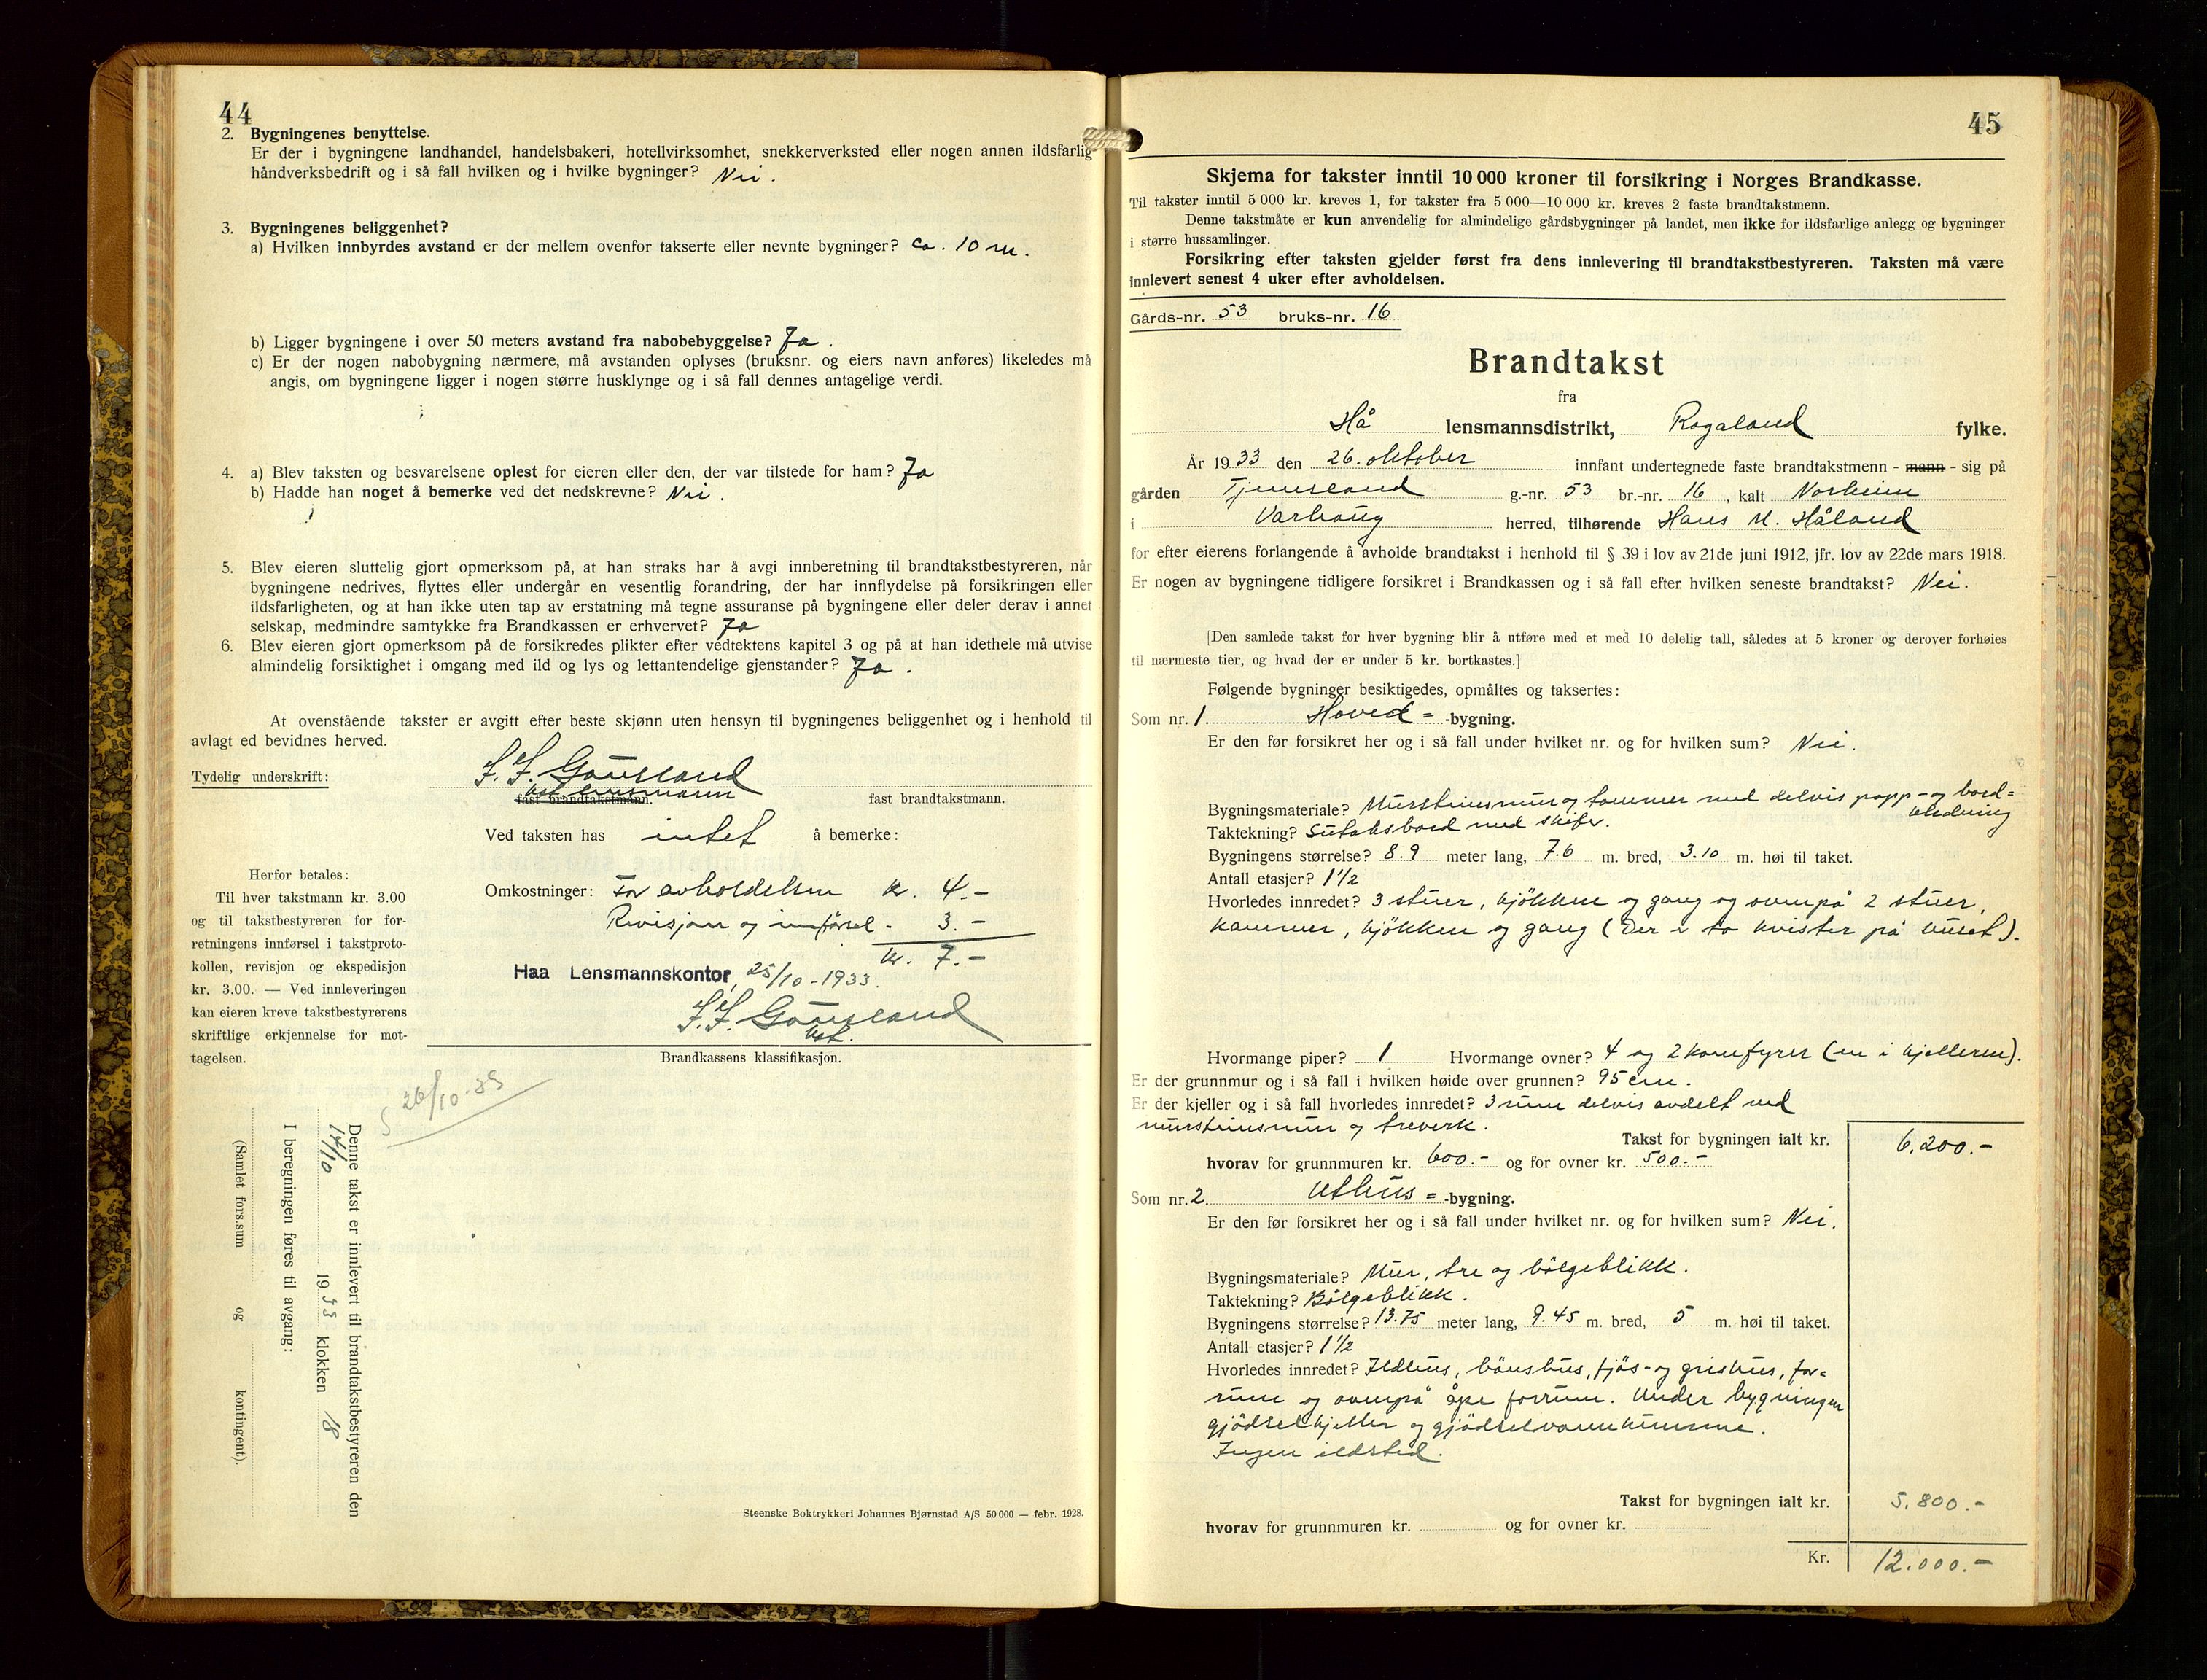 44
2. Bygningenes benyttelse.
Er der i bygningene landhandel, handelsbakeri, hotellvirksomhet, snekkerverksted eller nogen annen ildsfarlig
håndverksbedrift og i så fall hvilken og i hvilke bygninger? Nei.
3. Bygningenes beliggenhet?
a) Hvilken innbyrdes avstand er der mellem ovenfor takserte eller nevnte bygninger? ca. 10 m.
b) Ligger bygningene i over 50 meters avstand fra nabobebyggelse? Ja.
c) Er der nogen nabobygning nærmere, må avstanden oplyses (bruksnr. og eiers navn anføres) likeledes må
angis, om bygningene ligger i nogen større husklynge og i så fall dennes antagelige verdi.
4. a) Blev taksten og besvarelsene oplest for eieren eller den, der var tilstede for ham? Ja
b) Hadde han noget å bemerke ved det nedskrevne? Nei.
5. Blev eieren sluttelig gjort opmerksom på, at han straks har å avgi innberetning til brandtakstbestyreren, når
bygningene nedrives, flyttes eller undergår en vesentlig forandring, der har innflydelse på forsikringen eller
ildsfarligheten, og at han ikke uten tap av erstatning må tegne assuranse på bygningene eller deler derav i annet
selskap, medmindre samtykke fra Brandkassen er erhvervet? Ja
6. Blev eieren gjort opmerksom på de forsikredes plikter efter vedtektens kapitel 3 og på at han idethele må utvise
almindelig forsiktighet i omgang med ild og lys og lettantendelige gjenstander? Ja.
At ovenstående takster er avgitt efter beste skjønn uten hensyn til bygningenes beliggenhet og i henhold til
avlagt ed bevidnes herved.
Tydelig underskrift:
fast brandtakstmann. fast brandtakstmann.
Ved taksten has intet å bemerke:
Herfor betales:
Til hver takstmann kr. 3.00
og til takstbestyreren for for-
retningens innførsel i takstproto-
kollen, revisjon og ekspedisjon
kr. 3.00. — Ved innleveringen
kan eieren kreve takstbestyrerens
skriftlige erkjennelse for mot-
tagelsen.
Omkostninger: For avholdelsen kr. 4.-
Revisjon og innførsel - 3.-
kr. 7.-
Haa Lensmannskontor, 25/10-1933.
Brandkassens klassifikasjon.
26/10-33
Denne takst er innlevert til brandtakstbestyreren den
14/10 1933 klokken 18
I beregningen føres til avgang:
(Samlet fors.sum og kontingent).
Steenske Boktrykkeri Johannes Bjørnstad A/S 50 000 — febr. 1928.
45
Skjema for takster inntil 10 000 kroner til forsikring i Norges Brandkasse.
Til takster inntil 5 000 kr. kreves 1, for takster fra 5 000—10 000 kr. kreves 2 faste brandtakstmenn.
Denne takstmåte er kun anvendelig for almindelige gårdsbygninger på landet, men ikke for ildsfarlige anlegg og bygninger
i større hussamlinger.
Forsikring efter taksten gjelder først fra dens innlevering til brandtakstbestyreren. Taksten må være
innlevert senest 4 uker efter avholdelsen.
Gårds-nr. 53 bruks-nr. 16
Brandtakst
fra
Hå lensmannsdistrikt, Rogaland fylke.
År 1933 den 26. oktober innfant undertegnede faste brandtakstmenn - mann - sig på
gården Tjemsland g.-nr. 53 br.-nr. 16, kalt Norheim
i Varhaug herred, tilhørende Hans M. Håland
for efter eierens forlangende å avholde brandtakst i henhold til § 39 i lov av 21de juni 1912, jfr. lov av 22de mars 1918.
Er nogen av bygningene tidligere forsikret i Brandkassen og i så fall efter hvilken seneste brandtakst? Nei.
[Den samlede takst for hver bygning blir å utføre med et med 10 delelig tall, således at 5 kroner og derover forhøies
til nærmeste tier, og hvad der er under 5 kr. bortkastes.]
Følgende bygninger besiktigedes, opmåltes og taksertes:
Som nr. 1. Hoved= -bygning.
Er den før forsikret her og i så fall under hvilket nr. og for hvilken sum? Nei.
Bygningsmateriale? Murstensmur og tømmer med delvis papp- og bord=
kledning
Taktekning? Sutaksbord med skifer.
Bygningens størrelse? 8.9 meter lang, 7.6 m. bred, 3.10 m. høi til taket.
Antall etasjer? 1 1/2
Hvorledes innredet? 3 stuer, kjøkken og gang og ovenpå 2 stuer,
kammer, kjøkken og gang (Der er to kvister på huset).
Hvormange piper? 1 Hvormange ovner? 4 og 2 komfyrer (en i kjelleren).
Er der grunnmur og i så fall i hvilken høide over grunnen? 95 cm.
Er der kjeller og i så fall hvorledes innredet? 3 rum delvis avdelt med
murstensmur og treverk.
Takst for bygningen ialt kr. 6.200.-
hvorav for grunnmuren kr. 600.- og for ovner kr. 500.-
Som nr. 2. Uthus= -bygning.
Er den før forsikret her og i så fall under hvilket nr. og for hvilken sum? Nei.
Bygningsmateriale? Mur, tre og bølgeblikk.
Taktekning? Bølgeblikk.
Bygningens størrelse? 13.75 meter lang, 9.45 m. bred, 5 m. høi til taket.
Antall etasjer? 1 1/2
Hvorledes innredet? Ildhus, hønshus, fjøs- og grishus, for=
rum og ovenpå åpe forrum. Under bygningen
gjødselkjeller og gjødselvannkumme.
Ingen ildsted.
Takst for bygningen ialt kr. 5.800.-
hvorav for grunnmuren kr. og for ovner kr.
Kr. 12.000.-